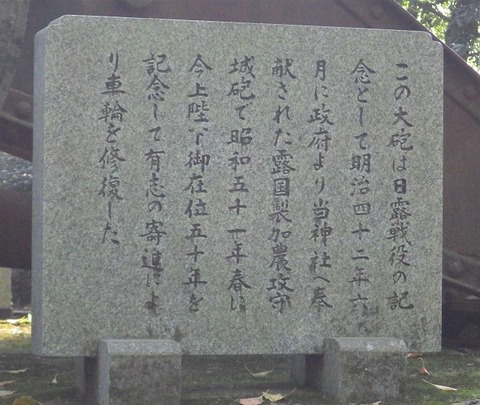 この大砲は日露戦役の記
念として明治四十二年六
月に政府より当神社へ奉
献された露国製加農攻守
城砲で昭和五十一年春に
今上陛下御在位五十年を
記念して有志の寄進によ
り車輪を修復した